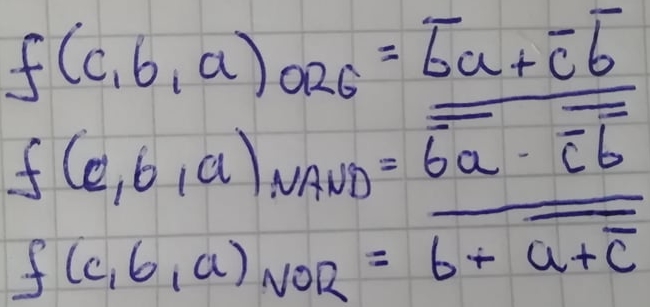 f(c,b,a)ORG = b̅a + c̅b̅
f(c,b,a)NAND = b̅a · c̅b̅
f(c,b,a)NOR = b + a + c̅